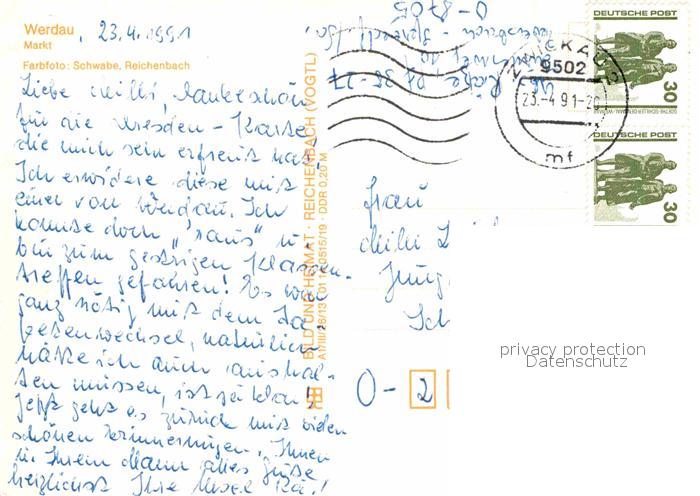 Werdau, 23.4.1991
Markt
Farbfoto: Schwabe, Reichenbach
Liebe Meilli, Dankeschön
für die Dresden-Karte
die mich sehr erfreut hat.
Ich erwidere diese mit
einer von Werdau. Ich
konnte doch "raus" u.
bin zum gestrigen Klassen-
treffen gefahren! Es war
ganz nötig mit dem Ta-
petenwechsel, natürlich
hätte ich auch aushal-
ten müssen, ist ja klar!
Jetzt geht es zurück mit vielen
schönen Erinnerungen. Ihnen
u. Ihrem Mann alles Gute
herzlichst Ihre Ursel Kä.!
BILD UND HEIMAT · REICHENBACH (VOGTL)
A1/III/26/13 01 14 0515/19 · DDR 0,20 M
O-8705
ZWICKAU
9502
23.-4.91-2
mf
DEUTSCHE POST
30
DEUTSCHE POST
30
Frau
O-2
privacy protection
Datenschutz